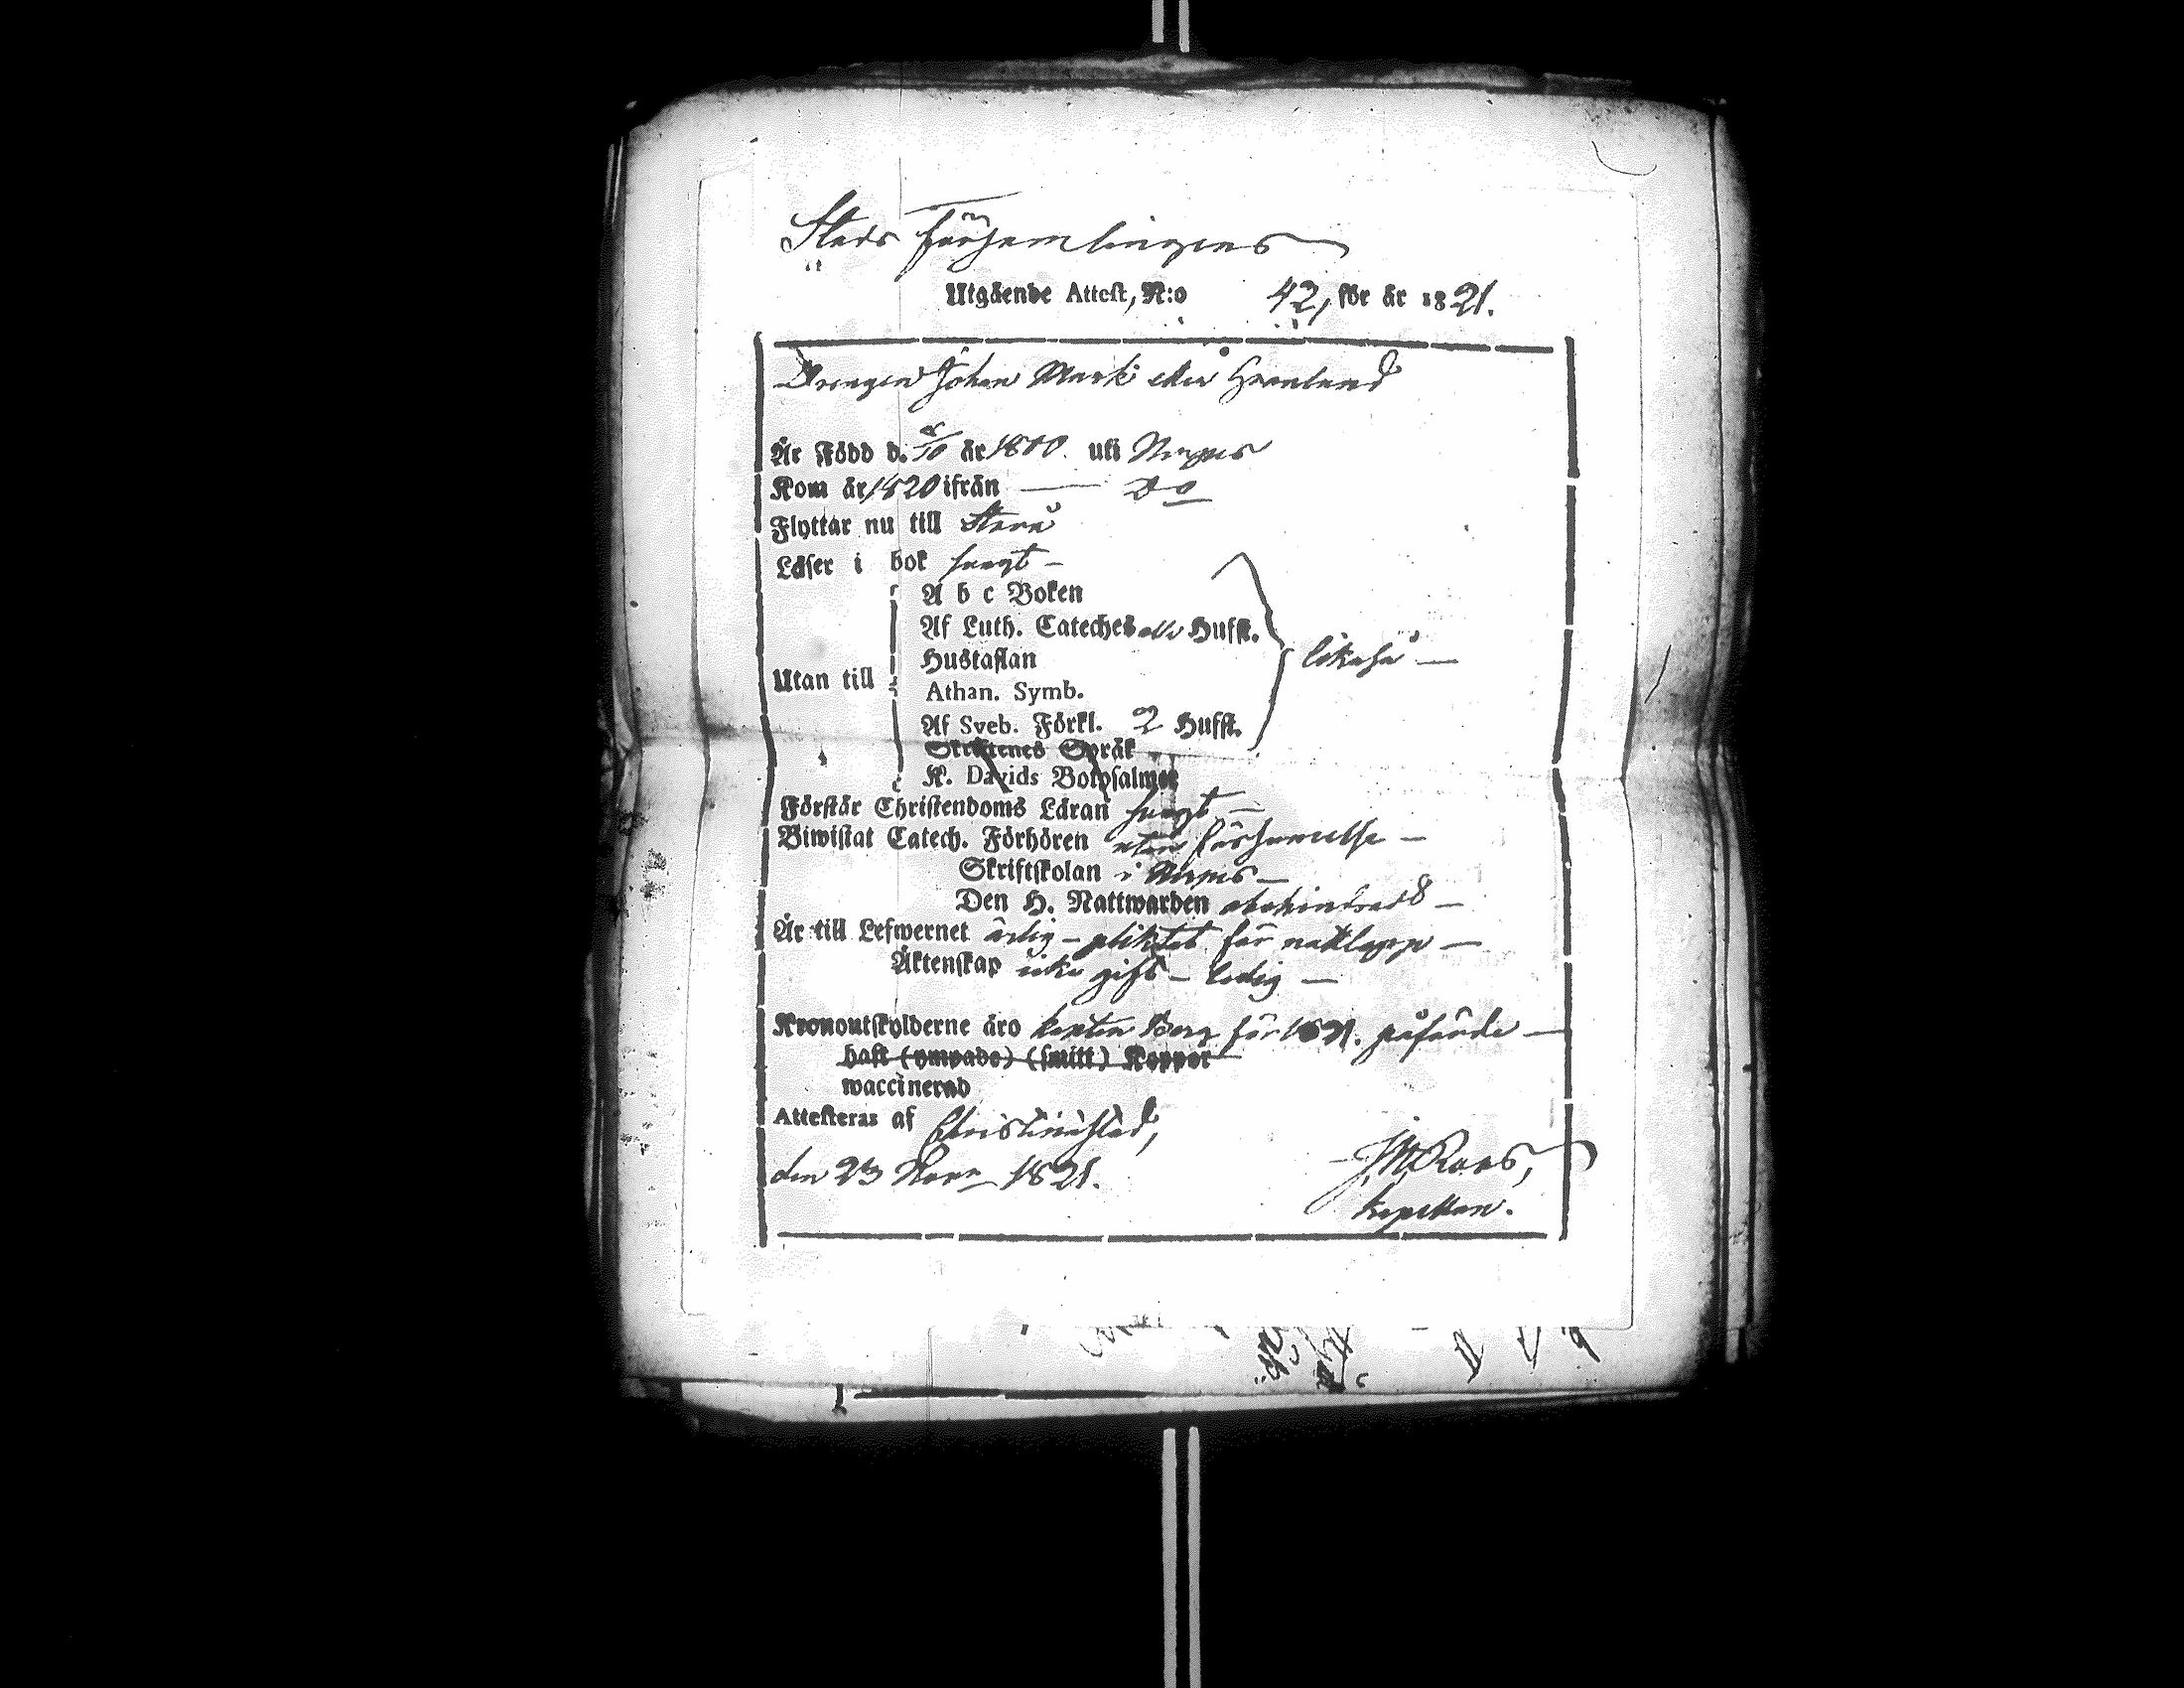 Stads församlingens
Utgående Attest, N:o 42, för år 1821.
Drengen Johan Mark eller Granlund
Är Född d. 8/10 år 1800. uti Nerpes
Kom år 1820 ifrån — Do
Flyttar nu till
Läser i bok swagt —
A b c Boken
Af Luth. Cateches alla Hufst.
Hustaflan
Utan till
Athan. Symb.
likaså —
Af Sveb. Förkl. 2 Hufst.
Skriftenes Språk
K. Davids Botpsalmer
Förstår Christendoms Läran swagt —
Biwistat Catech. Förhören utan försummelse —
Skriftskolan i Nerpes —
Den H. Nattwarden obehindradt —
Är till Lefwernet ärlig — pliktat för nattlopp —
Äktenskap icke gift — ledig —
Kronoutskylderne äro Berg för 1821. påförde —
haft (ympade) (smitt) Koppor
waccinerad
Attesteras af Christinæstad,
den 23 Novr 1821.
J. M. Roos,
kapellan.